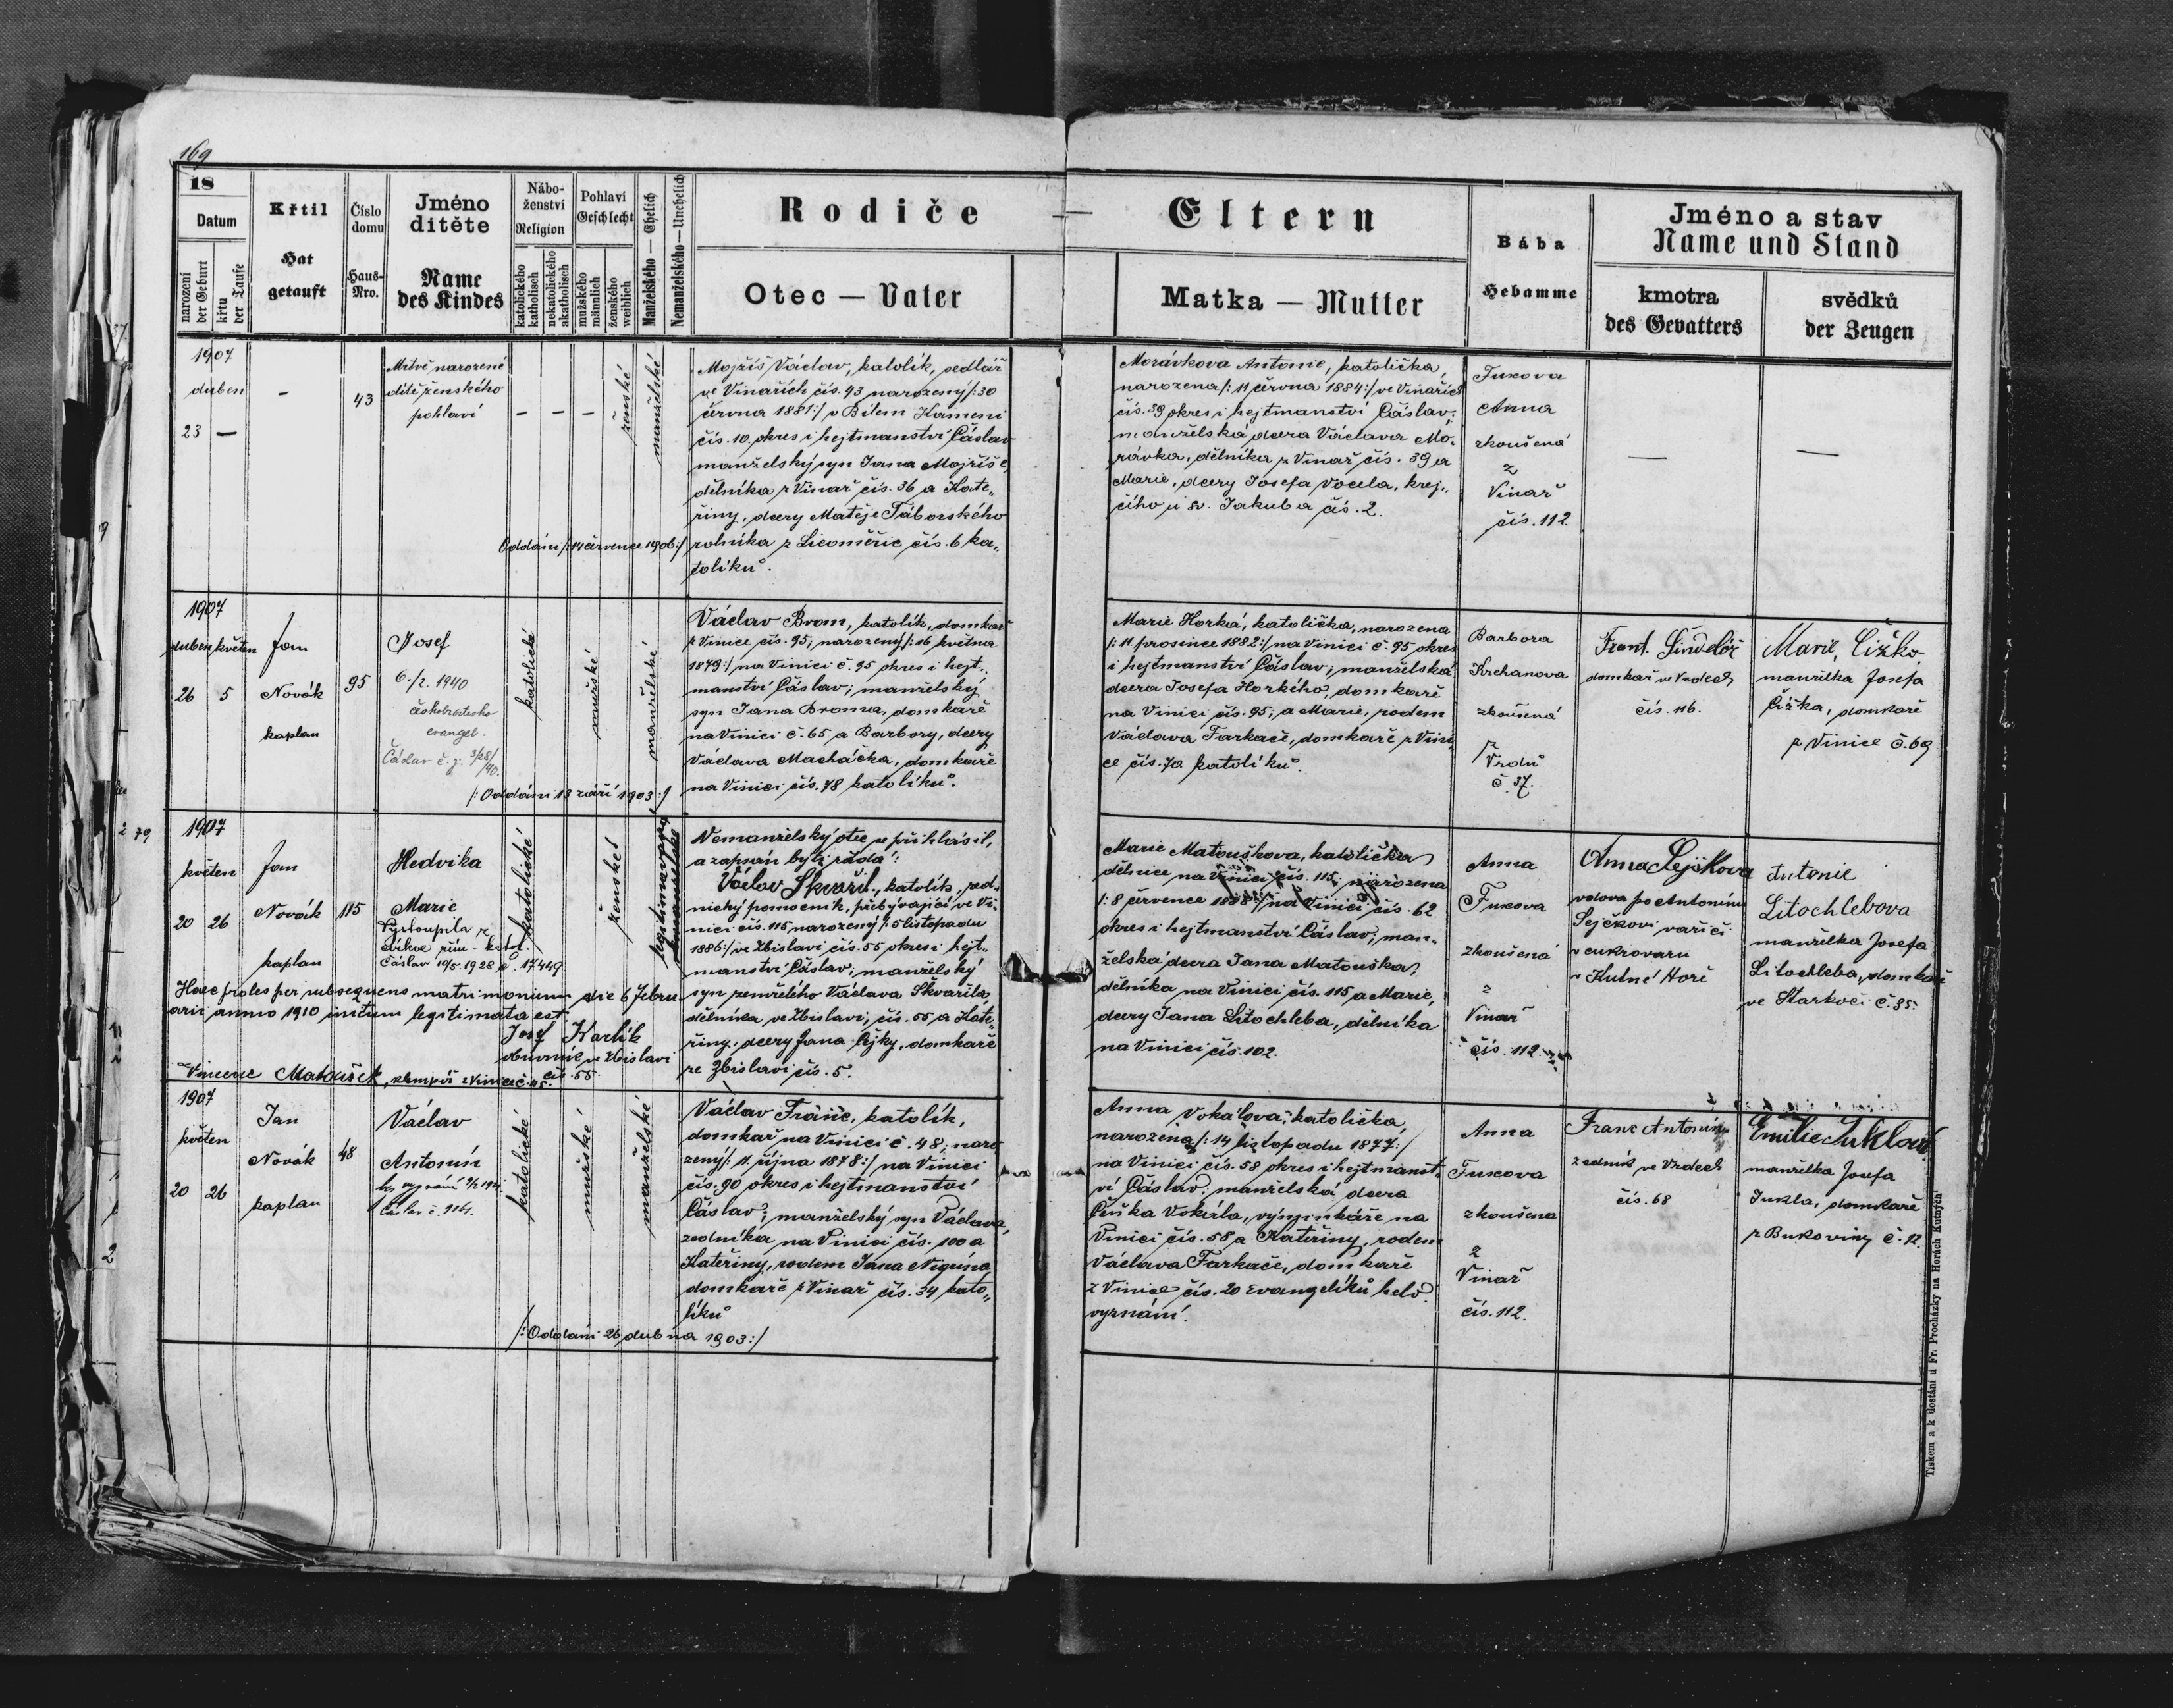 169
18
Datum
narození
der Geburt
křtu
der Taufe
Křtil
Hat
getauft
Číslo
domu
Haus-
Nro.
Jméno
dítěte
Name
des Kindes
Nábo-
ženství
Religion
katolického
katholisch
nekatolického
akatholisch
Pohlaví
Geschlecht
mužského
männlich
ženského
weiblich
Manželského — Ehelich
Nemanželského — Unehelich
Rodiče — Eltern
Otec — Vater
Matka — Mutter
Bába
Hebamme
Jméno a stav
Name und Stand
kmotra
des Gevatters
svědků
der Zeugen
1907
duben
23 —
–
43
Mrtvě narozené
dítě ženského
pohlaví
– – –
ženské
manželské
Mojžíš Václav, katolík, sedlář
ve Vinařích čís. 43 narozený /: 30
června 1881 :/ v Bílem Kameni
čís. 10. okres i hejtmanství Čáslav
manželský syn Jana Mojžíše,
dělníka z Vinař čís. 36 a Kate„
řiny, dcery Matěje Táborského
rolníka z Licoměřic čís. 6 ka„
tolíků.
Oddáni /: 14 července 1906 :/
Morávkova Antonie, katolička,
narozena /: 11 června 1884 :/ ve Vinařích
čís. 39 okres i hejtmanství Čáslav;
manželská dcera Václava Mo„
rávka, dělníka z Vinař čís. 39 a
Marie, dcery Josefa Vocela, krej„
čího u sv. Jakuba čís. 2.
Fuxova
Anna
zkoušená
z
Vinař
čís. 112
—
—
1907
duben květen
26 5
Jan
Novák
kaplan
95
Josef
6./2. 1940
českobratrsko
evangel.
Čáslav č. j. 3/28/
/40.
katolické
mužské
manželské
Václav Brom, katolík, domkař
z Vinice čís. 95; narozený /: 16 května
1879 :/ na Vinici č. 95 okres i hejt„
manství Čáslav; manželský
syn Jana Broma, domkaře
na Vinici č. 65 a Barbory, dcery
Václava Macháčka, domkaře
na Vinici čís. 78 katolíků.
/: Oddáni 13 září 1903 :/
Marie Horká, katolička, narozena
/: 11. prosince 1882 :/ na Vinici č. 95 okres
i hejtmanství Čáslav; manželská
dcera Josefa Horkého, domkaře
na Vinici čís. 95; a Marie, rodem
Václava Farkače, domkaře z Vini„
ce čís. 70 katolíků.
Barbora
Krchanova
zkoušená
z
Vrdů
č. 37.
Frant. Šindelář
domkař ve Vrdech
čís. 116.
Marie Čížko
manželka Josefa
Čížka, domkaře
z Vinice č. 69
1907
květen
20 26
Jan
Novák
kaplan
115
Hedvika
Marie
Vystoupila z
církve řím-katol.
Čáslav 19/5. 1928 č. 17449
katolické
ženské
legitimovaná
nemanželské
Nemanželský otec se přihlásil,
a zapsán býti žádá:
Václav Skvařil, katolík, zed„
nický pomocník, přebývající ve Vi„
nici čís. 115 narozený /: 5 listopadu
1886 :/ ve Zbislavi čís. 55 okres i hejt„
manství Čáslav; manželský
syn zemřelého Václava Skvařila,
dělníka ve Zbislavi; čís. 55 a Kate„
řiny, dcery Jana Čejky, domkaře
ze Zbislavi čís. 5.
Haec proles per subsequens matrimonium die 6 Febru
arii anno 1910 initum legitimata est.
Josef Karlík
obuvník ve Zbislavi
čís. 55.
Vincenc Matoušek, z Vinice č. 115.
Marie Matouškova, katolička
dělnice na Vinici čís. 115; narozena
/: 8 července 1888 :/ na Vinici čís. 62
okres i hejtmanství Čáslav; man„
želská dcera Jana Matouška,
dělníka na Vinici čís. 115 a Marie,
dcery Jana Litochleba, dělníka
na Vinici čís. 102.
Anna
Fuxova
zkoušená
z
Vinař
čís. 112.
Anna Lejčkova
vdova po Antonínu
Lejčkovi vařiči
v cukrovaru
v Kutné Hoře
Antonie
Litochlebova
manželka Josefa
Litochleba, domkaře
ve Starkoči č. 35.
1907
květen
20 26
Jan
Novák
kaplan
48
Václav
Antonín
Čáslav č. 914.
katolické
mužské
manželské
Václav Franc, katolík,
domkař na Vinici č. 48; naro
zený /: 11. října 1878 :/ na Vinici
čís. 90 okres i hejtmanství
Čáslav; manželský syn Václava,
zedníka na Vinici čís. 100 a
Kateřiny, rodem Jana Nigrina
domkaře z Vinař čís. 34 kato„
líků
/: Oddáni 26 dubna 1903 :/
Anna Vokálova, katolička,
narozena /: 14 listopadu 1877 :/
na Vinici čís. 58 okres i hejtmanst„
ví Čáslav; manželská dcera
Čeňka Vokála, výminkáře na
Vinici čís. 58 a Kateřiny, rodem
Václava Farkače, domkaře
z Vinice čís. 20 Evangelíků helv.
vyznání.
Anna
Fuxova
zkoušena
z
Vinař
čís. 112.
Franc Antonín
zedník ve Vrdech
čís. 68
Emilie Tuklová
manželka Josefa
Tukla, domkaře
z Bukoviny č. 12.
Tiskem a k dostání u Fr. Procházky na Horách Kutných